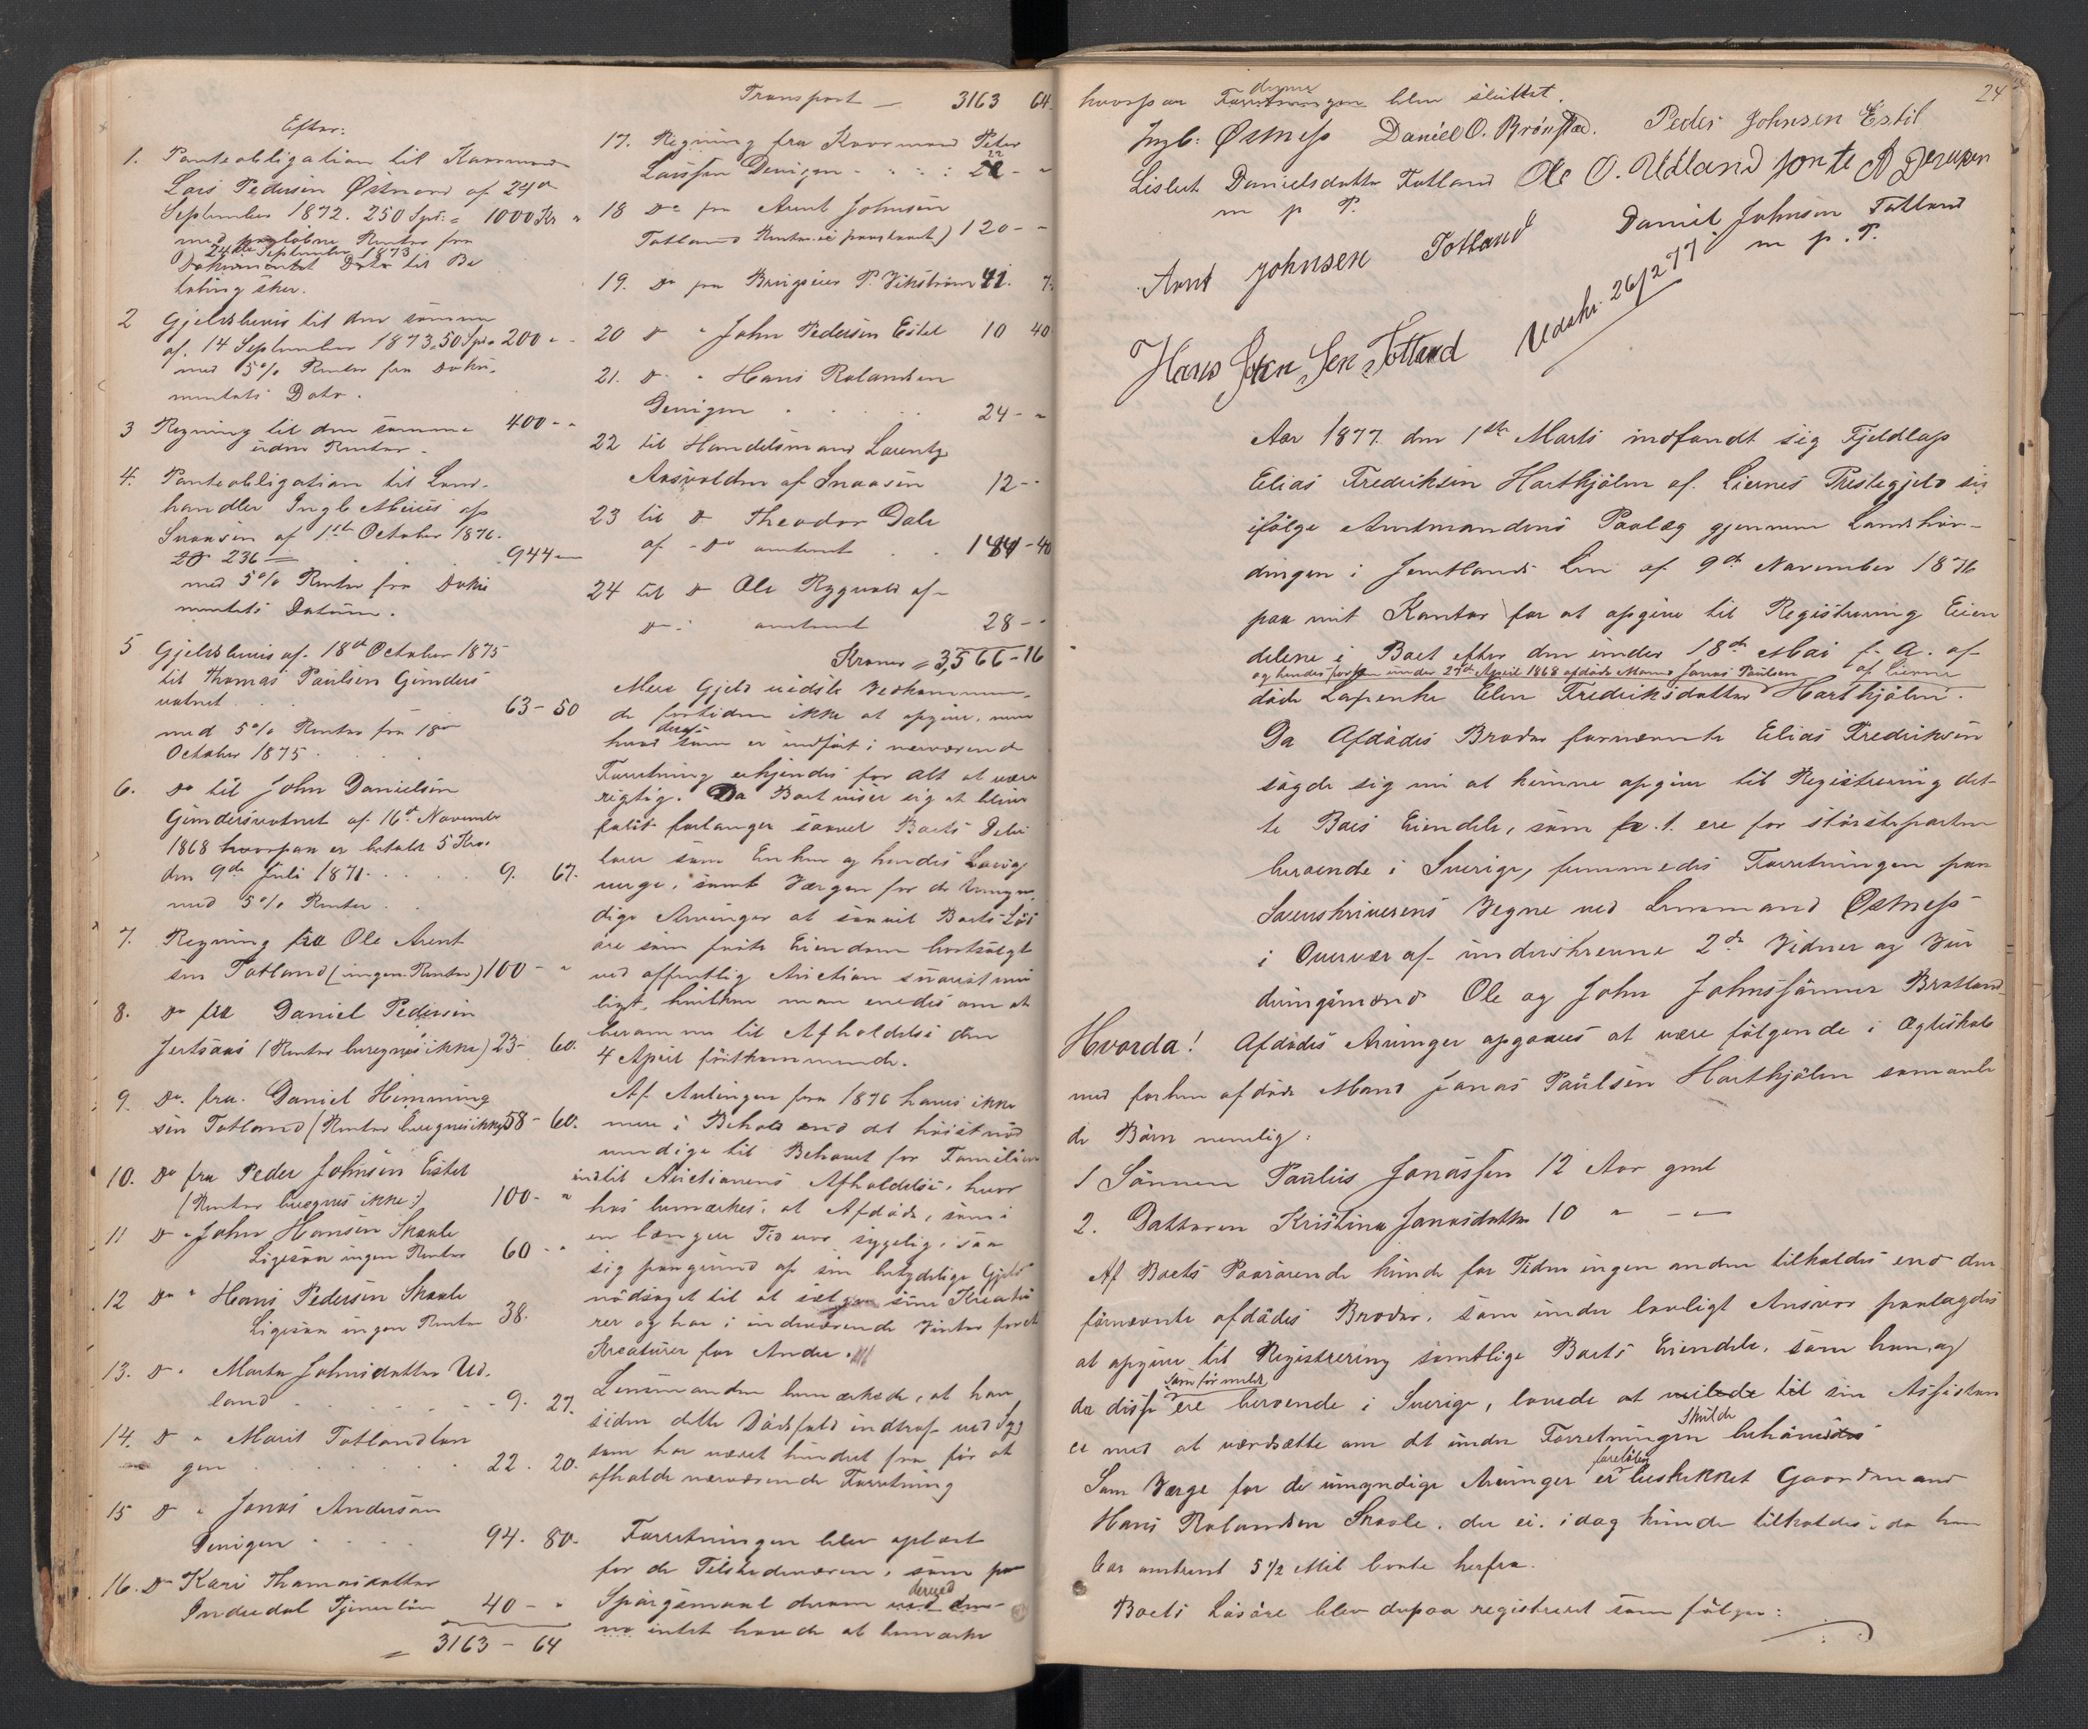 Efter:
1. Panteobligation til Kaarmand
Lars Pedersen Østnæs af 24de
September 1872. 250 Spd. = 1000 Kr "
med paaløbne Renter fra
24de September 1873
Dokumentets Dato til Be
taling sker.
2 Gjeldsbevis til den samme
af 14 September 1873. 50 Spd. 200 "-
med 5% Renter fra Doku-
mentets Dato.
3 Regning til den samme 400 - "
uden Renter.
4. Panteobligation til Land-
handler Ingb. af
Snaasen af 1ste October 1876.
236 — 944 —
med 5% Renter fra Doku
mentets Datum.
5 Gjeldsbevis af 18de October 1875
til Thomas Paulsen Gjinders
vatnet . . . 63 - 50
med 5% Renter fra 18de
October 1875.
6. Do til John Danielsen
Gjindersvatnet af 16de November
1868 hvorpaa er betalt 5 Kro.
den 9de Juli 1871. . . . . 9. 67.
med 5% Renter.
7. Regning fra Ole Arent
sen Totland (ingen Renter) 100 - "
8. Do fra Daniel Pedersen
Jertsaas (Renter beregnes ikke) 23 - 60.
9. Do. fra Daniel Hemming
sen Totland (Renter beregnes ikke) 58 - 60.
10. Do fra Peder Johnsen Estil
(Renter beregnes ikke:) 100 - "
11 Do " John Hansen Skaale
Ligesaa ingen Renter 60 - "
12 Do " Hans Pedersen Skaale
Ligesaa ingen Renter 38.
13. Do " Marta Johnsdatter Ud-
land . . . . . - 9. 27.
14. Do " Marit Totland
gen . . . . . 22. 20.
15 Do " Jonas Andersen
Devigen . . . . 94. 80-
16. Do Kari Thomasdatter
Inderdal Tjenerløn 40 - "
= 3163 - 64
Transport — 3163 64
17. Regning fra Kaarmand Peter
Larssen Devigen - . . : 22 - "
18 Do fra Arent Johnsen
Totland (Renter ei paastaaet) 120 - "
19. Do fra Brugseier P. Vikström 41. 7.
20 Do " John Pedersen Estil 10 40
21. Do " Hans Rolandsen
Devigen . . . . . 24 - "
22 til Handelsmand Lorentz
Aasvolden af Snaasen 12 - "
23 til Do Theodor Dahl
af - Do omtrent . . 141 - 40
24 til Do Ole Rygvold af-
Do omtrent 28 - "
Kroner = 3,566 - 16
Mere Gjeld vidste Vedkommen-
de fortiden ikke at opgive, men
hvad deraf som er indført i nærværende
Forretning erkjendes for alt at være
rigtig. Da Boet viser sig at blive
falit forlanger saavel Boets Debi
torer som Enken og hendes Laug
værge, samt Værgen for de Umyn-
dige Arvinger at saavel Boets Løs
øre som faste Eiendom bortsælges
ved offentlig Auction snarest mu
ligt, hvilken man enedes om at
beramme til Afholdelse den
4 April førstkommende.
Af Avlingen fra 1876 haves ikke
mere i Behold end det høist nød
vendige til Behovet for Familien
indtil Auctionens Afholdelse, hvor
hos bemærkes: at Afdøde, som i
en længere Tid var sygelig, saa
sig paagrund af sin betydelige Gjeld
nødsaget til at sælge sine Kreatu
rer og har i indeværende Vinter foret
Kreaturer for Andre.
Lensmanden bemærkede, at han
siden dette Dødsfald indtraf ved Syg
dom har været hindret fra før at
afholde nærværende Forretning
Forretningen blev oplæst
for de Tilstedeværende, som paa
Spørgsmaal derom derved
intet havde at bemærke
24
hvorpaa denne Forretningen blev sluttet.
Ingb. Østness Daniel O. Brönstad. Peder Johnsen Estil
Lisbet Danielsdatter Totland Ole O. Udland Jonte A. Devigen
m p P.
Arnt Johnsen Totland Daniel Johnsen Totland
m. p. P.
Hans Johnsen Totland Udskr. 26/2 77
Aar 1877 den 1ste Marts indfandt sig Fjeldlap
Elias Fredriksen Hartkjølen af Liernes Prestegjeld sig
ifølge Amtmandens Paalæg gjennem Landshøv-
dingen i Jemtlands Len af 9de November 1876
paa mit Kontor for at opgive til Registrering Eien
delene i Boet efter den under 18de Mai f. A. af-
og hendes forhen under 27de April 1868 afdøde Mand Jonas Paulsen af Lierne
døde Lapenke Elen Fredriksdatter Hartkjølen.
Da Afdødes Broder fornævnte Elias Fredriksen
sagde sig nu at kunne opgive til Registrering det-
te Boes Eiendele, som p. t. ere for størsteparten
beroende i Sverige, fremmedes Forretningen paa
Sorenskriverens Vegne ved Lensmand Østness
i Overvær af underskrevne 2de Vidner og Vur
deringsmænd Ole og John Johnssønner Bratland
Hvorda! Afdødes Arvinger opgaves at være følgende i Ægteskab
med forhen afdøde Mand Jonas Paulsen Hartkjølen sammenavle
de Børn nemlig:
1 Sønnen Paulus Jonassen 12 Aar gml
2. Datteren Kristina Jonasdatter 10 " — "
Af Boets Paarørende kunde for Tiden ingen anden tilholdes end den
førnævnte afdødes Broder, som under lovligt Ansvar paalagdes
at opgive til Registrering samtlige Boets Eiendele, som han, og
da disse som før meldt ere beroende i Sverige, lovede at til sin Assistan
ce med at værdsætte om det under Forretningen skulde behøves
Som Værge for de umyndige Arvinger er foreløbig beskikket Gaardmand
Hans Rolandsen Skaale, der ei idag kunde tilholdes, da han
bor omtrent 5 1/2 Mil borte herfra.
Boets Løsøre blev derpaa registreret som følger: